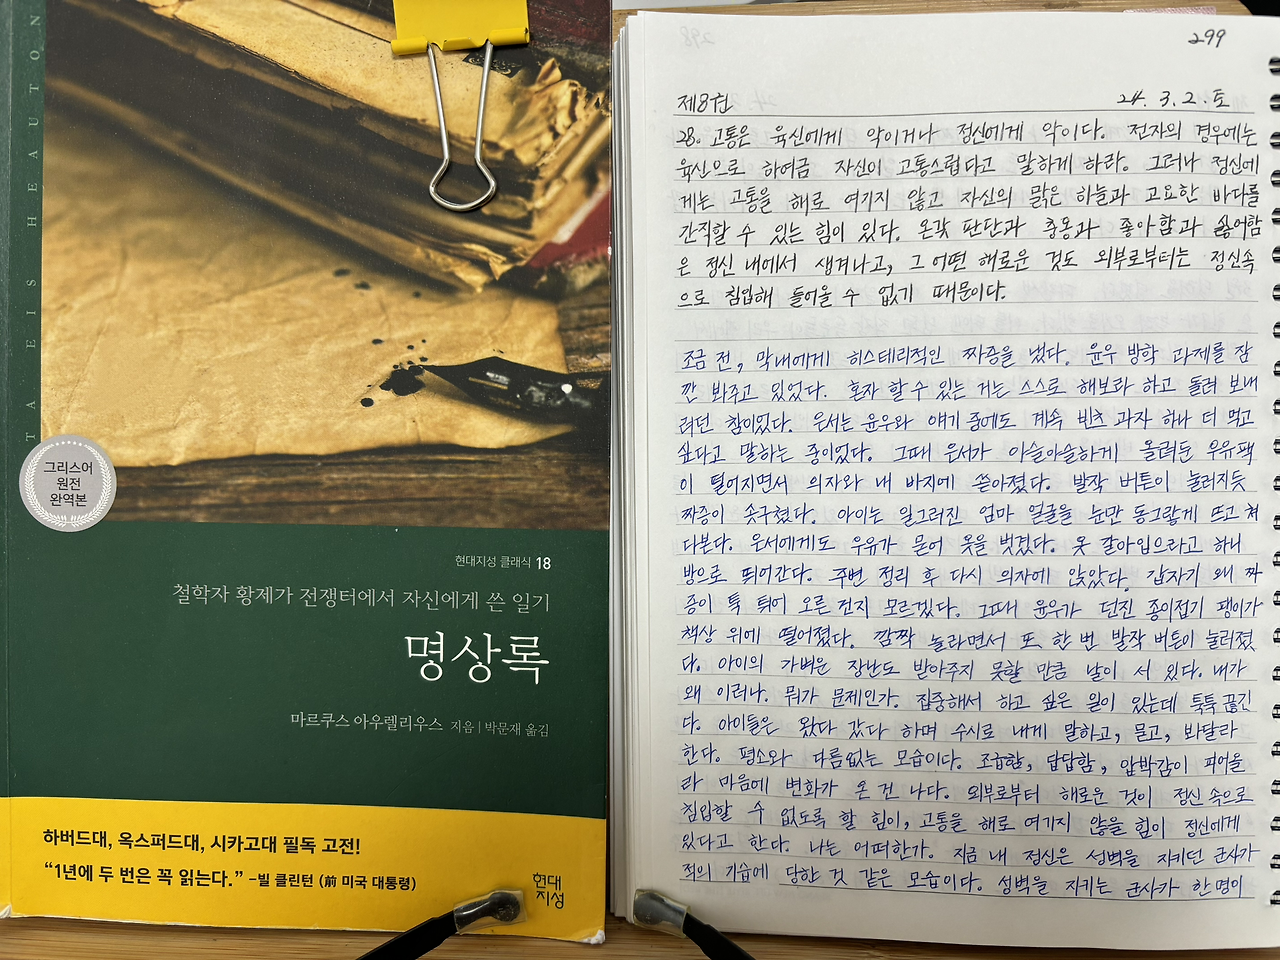 TA EIS HEAUTON
그리스어
원전
완역본
현대지성 클래식 18
철학자 황제가 전쟁터에서 자신에게 쓴 일기
명상록
마르쿠스 아우렐리우스 지음 | 박문재 옮김
하버드대, 옥스퍼드대, 시카고대 필독 고전!
“1년에 두 번은 꼭 읽는다.” -빌 클린턴 (前 미국 대통령)
현대
지성
299
제8권 24. 3. 2. 토
28. 고통은 육신에게 악이거나 정신에게 악이다. 전자의 경우에는
육신으로 하여금 자신이 고통스럽다고 말하게 하라. 그러나 정신에
게는 고통을 해로 여기지 않고 자신의 맑은 하늘과 고요한 바다를
간직할 수 있는 힘이 있다. 온갖 판단과 충동과 좋아함과 싫어함
은 정신 내에서 생겨나고, 그 어떤 해로운 것도 외부로부터는 정신속
으로 침입해 들어올 수 없기 때문이다.
조금 전, 막내에게 히스테리적인 짜증을 냈다. 윤우 방학 과제를 잠
깐 봐주고 있었다. 혼자 할 수 있는 거는 스스로 해보라 하고 돌려 보내
려던 참이었다. 은서는 윤우와 얘기 중에도 계속 빈츠 과자 하나 더 먹고
싶다고 말하는 중이었다. 그때 은서가 아슬아슬하게 올려둔 우유팩
이 떨어지면서 의자와 내 바지에 쏟아졌다. 발작 버튼이 눌러지듯
짜증이 솟구쳤다. 아이는 일그러진 엄마 얼굴을 눈만 동그랗게 뜨고 쳐
다본다. 은서에게도 우유가 묻어 옷을 벗겼다. 옷 갈아입으라고 하니
방으로 뛰어간다. 주변 정리 후 다시 의자에 앉았다. 갑자기 왜 짜
증이 툭 튀어 오른 건지 모르겠다. 그때 윤우가 던진 종이접기 팽이가
책상 위에 떨어졌다. 깜짝 놀라면서 또 한 번 발작 버튼이 눌러졌
다. 아이의 가벼운 장난도 받아주지 못할 만큼 날이 서 있다. 내가
왜 이러나. 뭐가 문제인가. 집중해서 하고 싶은 일이 있는데 툭툭 끊긴
다. 아이들은 왔다 갔다 하며 수시로 내게 말하고, 묻고, 봐달라
한다. 평소와 다름없는 모습이다. 조급함, 답답함, 압박감이 피어올
라 마음에 변화가 온 건 나다. 외부로부터 해로운 것이 정신 속으로
침입할 수 없도록 할 힘이, 고통을 해로 여기지 않을 힘이 정신에게
있다고 한다. 나는 어떠한가. 지금 내 정신은 성벽을 지키던 군사가
적의 기습에 당한 것 같은 모습이다. 성벽을 지키는 군사가 한명이